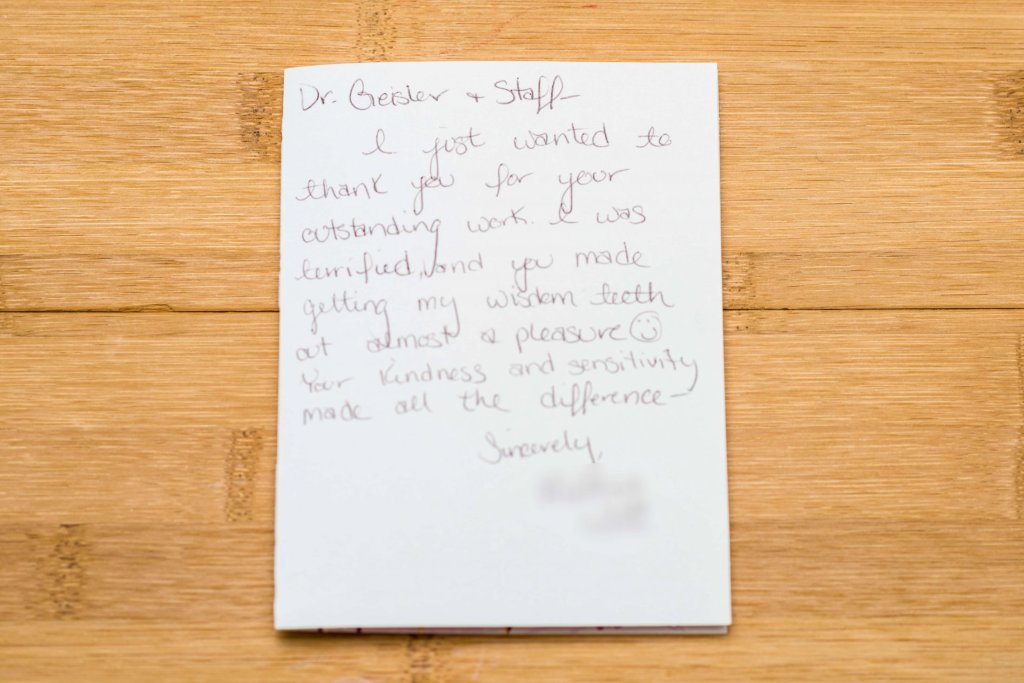 Dr. Geisler + Staff-
I just wanted to
thank you for your
outstanding work. I was
terrified, and you made
getting my wisdom teeth
out almost a pleasure☺
Your kindness and sensitivity
made all the difference-
Sincerely,